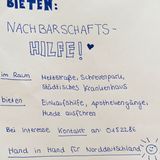 BIETEN:
NACHBARSCHAFTS-
HILFE!
im Raum
Mettstraße, Schreienpark,
Städtisches Krankenhaus
bieten
Einkaufshilfe, Apothekengänge,
Hunde ausführen
Bei Interesse Kontakt an 015222.86
Hand in Hand für Norddeutschland